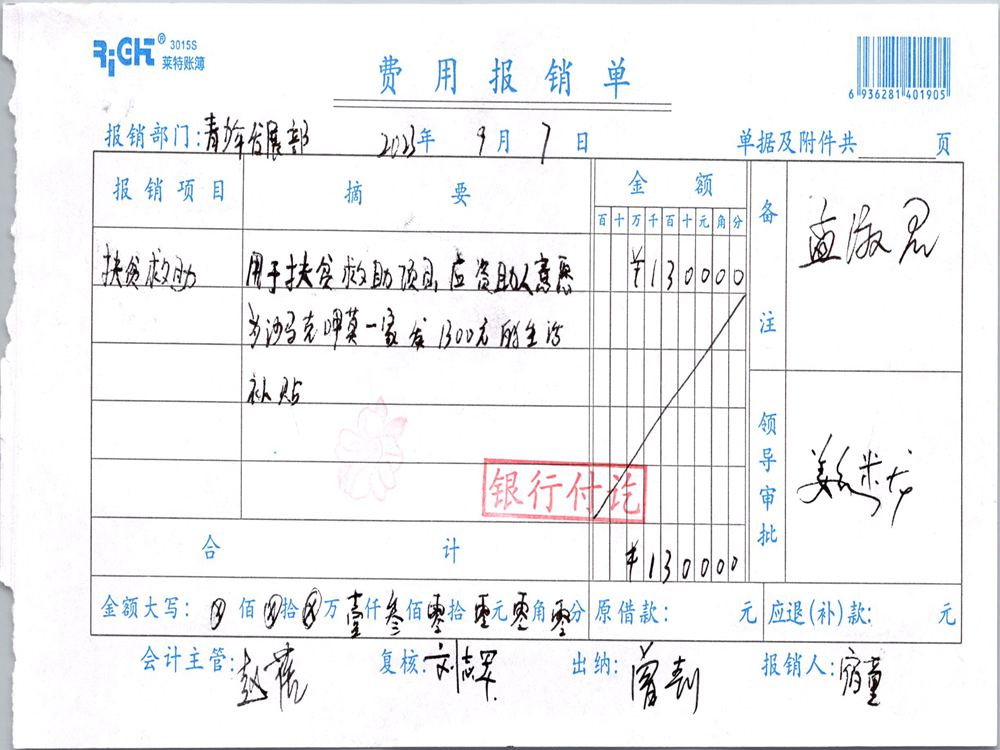 RiCH® 3015S
莱特账簿
费用报销单
6 936281 401905
报销部门:青少年发展部 2023年 9月 7日 单据及附件共 页
报销项目 摘要 金额 备注
百十万千百十元角分
扶贫救助 用于扶贫救助项目,应资助人意愿 ¥130000
为沙马克呷莫一家发1300元的生活
补贴
领导审批
银行付讫
合计 ¥130000
金额大写: ⊗佰⊗拾⊗万壹仟叁佰零拾零元零角零分 原借款: 元 应退(补)款: 元
会计主管: 复核:刘志军 出纳: 报销人: